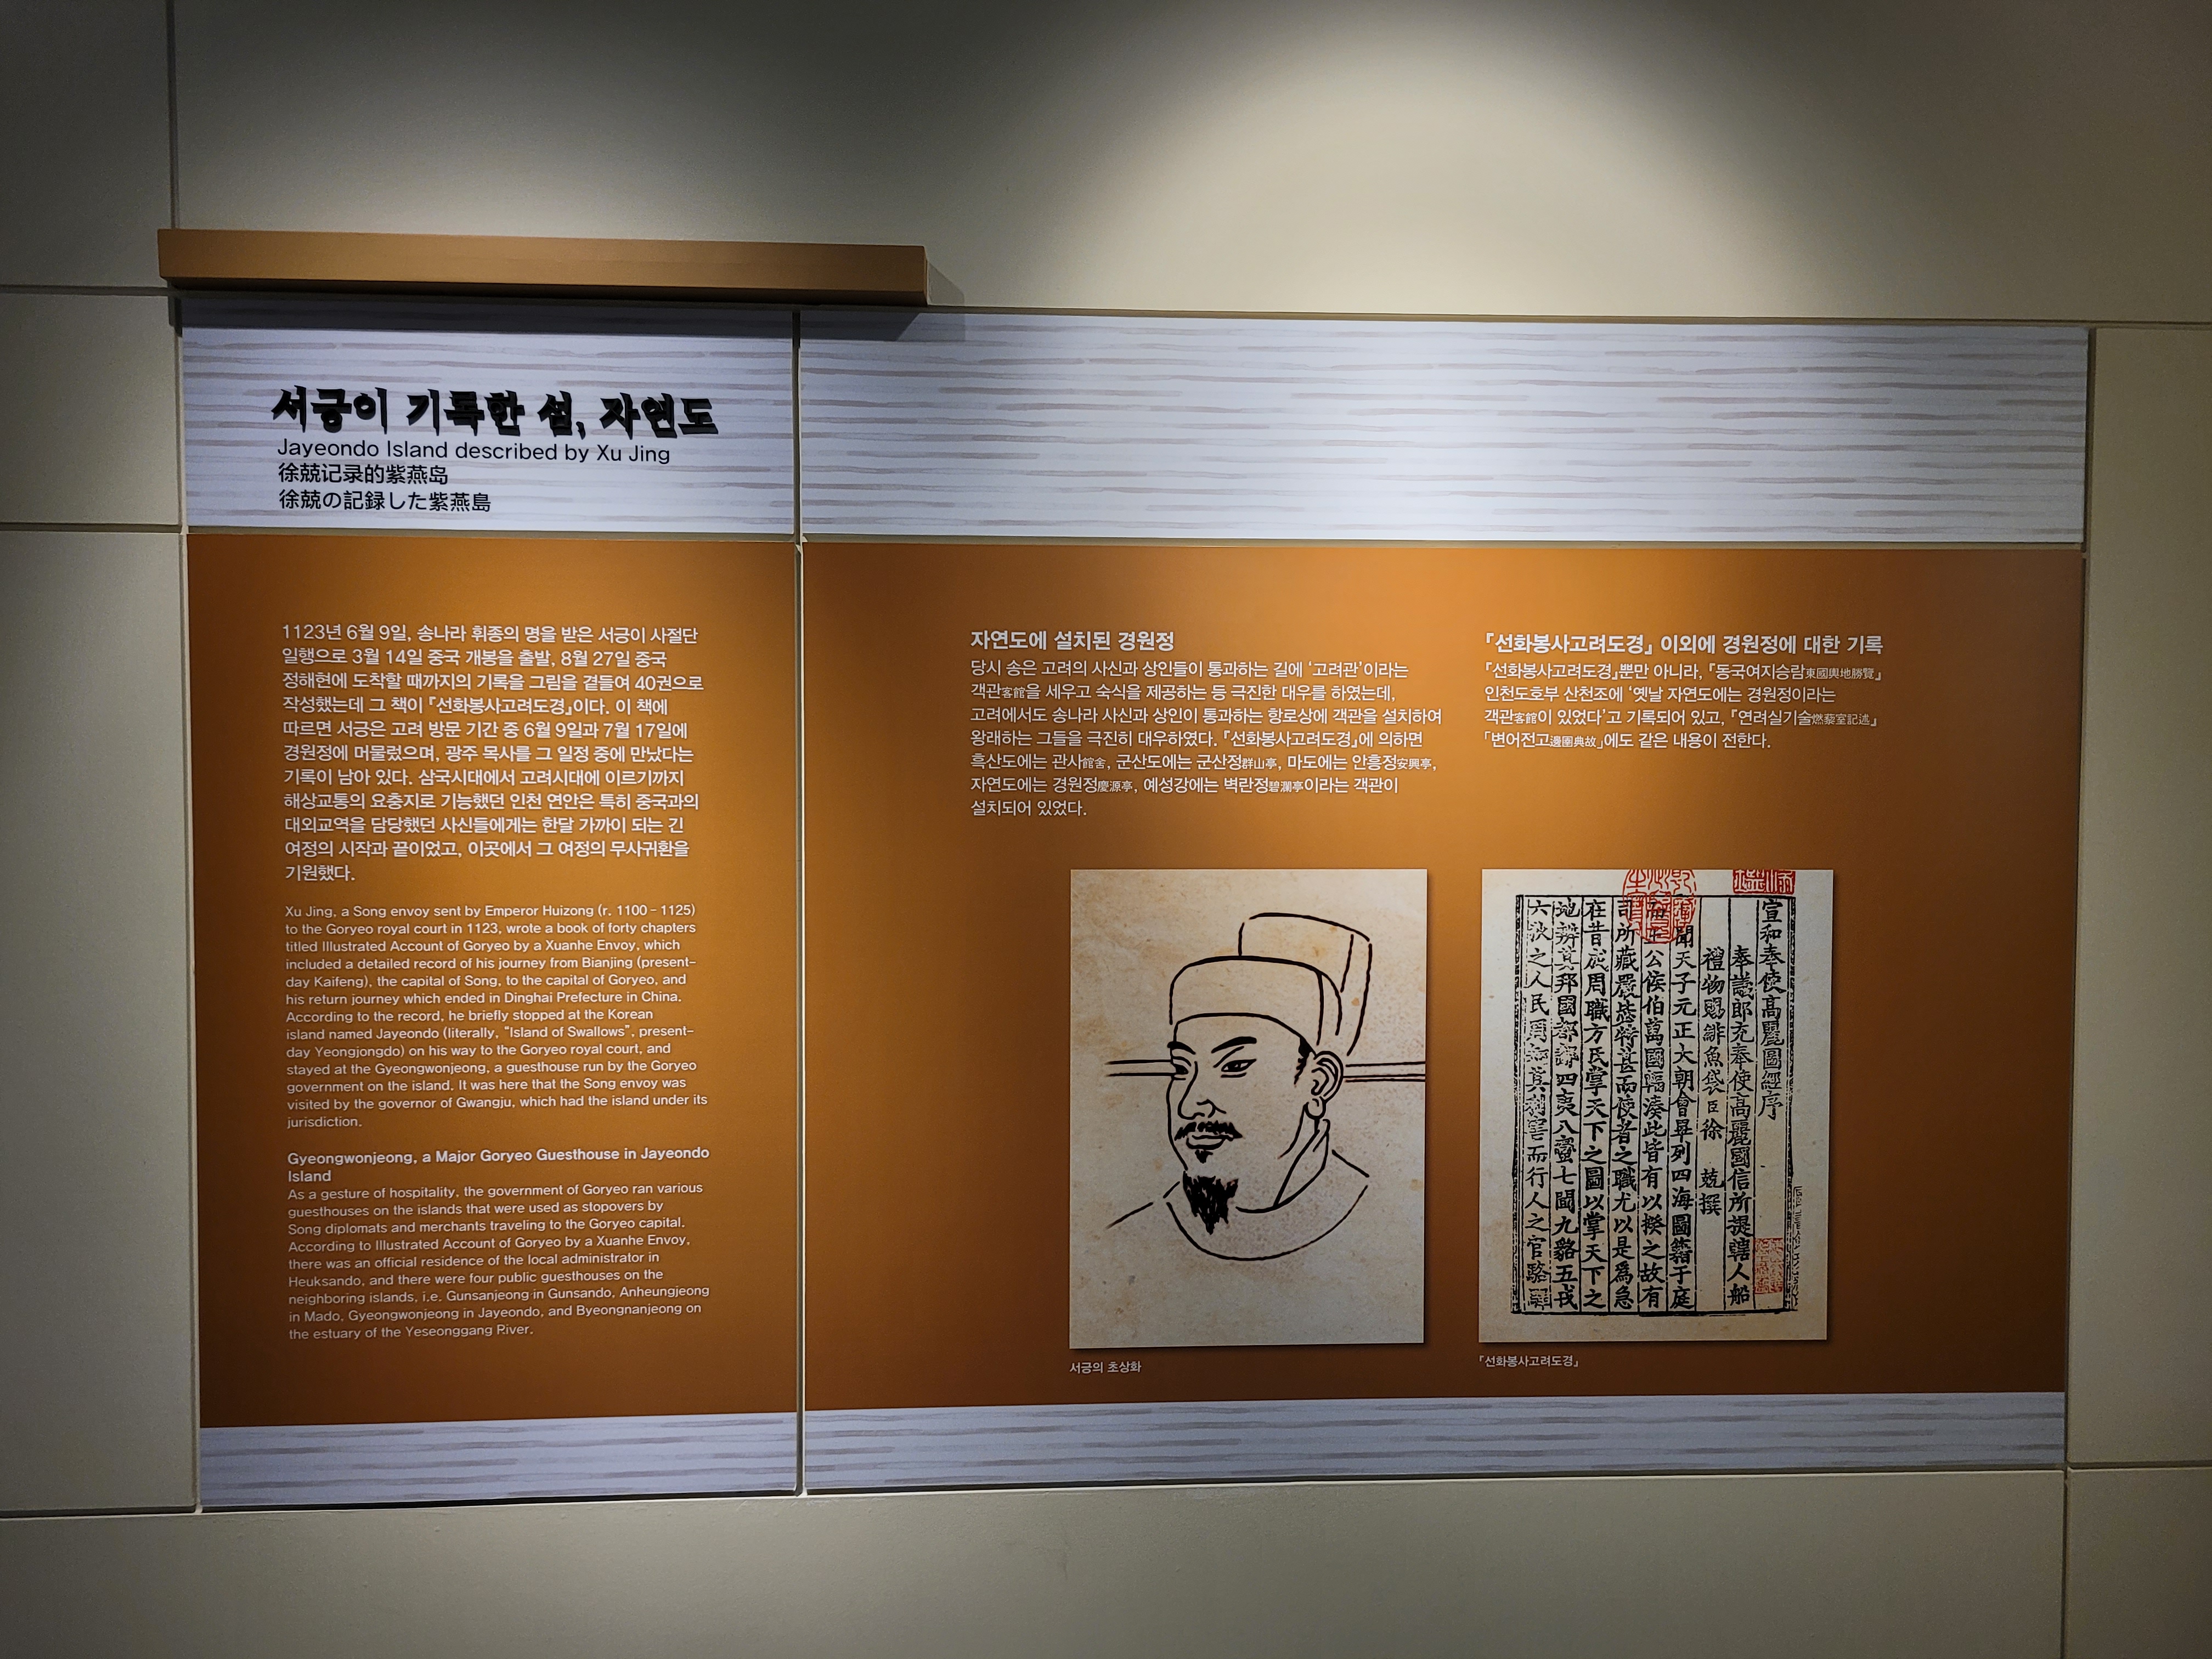 서긍이 기록한 섬, 자연도
Jayeondo Island described by Xu Jing
徐兢记录的紫燕岛
徐兢の記録した紫燕島
1123년 6월 9일, 송나라 휘종의 명을 받은 서긍이 사절단
일행으로 3월 14일 중국 개봉을 출발, 8월 27일 중국
정해현에 도착할 때까지의 기록을 그림을 곁들여 40권으로
작성했는데 그 책이 『선화봉사고려도경』이다. 이 책에
따르면 서긍은 고려 방문 기간 중 6월 9일과 7월 17일에
경원정에 머물렀으며, 광주 목사를 그 일정 중에 만났다는
기록이 남아 있다. 삼국시대에서 고려시대에 이르기까지
해상교통의 요충지로 기능했던 인천 연안은 특히 중국과의
대외교역을 담당했던 사신들에게는 한달 가까이 되는 긴
여정의 시작과 끝이었고, 이곳에서 그 여정의 무사귀환을
기원했다.
Xu Jing, a Song envoy sent by Emperor Huizong (r. 1100 - 1125)
to the Goryeo royal court in 1123, wrote a book of forty chapters
titled Illustrated Account of Goryeo by a Xuanhe Envoy, which
included a detailed record of his journey from Bianjing (present-
day Kaifeng), the capital of Song, to the capital of Goryeo, and
his return journey which ended in Dinghai Prefecture in China.
According to the record, he briefly stopped at the Korean
island named Jayeondo (literally, "Island of Swallows", present-
day Yeongjongdo) on his way to the Goryeo royal court, and
stayed at the Gyeongwonjeong, a guesthouse run by the Goryeo
government on the island. It was here that the Song envoy was
visited by the governor of Gwangju, which had the island under its
jurisdiction.
Gyeongwonjeong, a Major Goryeo Guesthouse in Jayeondo
Island
As a gesture of hospitality, the government of Goryeo ran various
guesthouses on the islands that were used as stopovers by
Song diplomats and merchants traveling to the Goryeo capital.
According to Illustrated Account of Goryeo by a Xuanhe Envoy,
there was an official residence of the local administrator in
Heuksando, and there were four public guesthouses on the
neighboring islands, i.e. Gunsanjeong in Gunsando, Anheungjeong
in Mado, Gyeongwonjeong in Jayeondo, and Byeongnanjeong on
the estuary of the Yeseonggang River.
자연도에 설치된 경원정
당시 송은 고려의 사신과 상인들이 통과하는 길에 '고려관'이라는
객관客館을 세우고 숙식을 제공하는 등 극진한 대우를 하였는데,
고려에서도 송나라 사신과 상인이 통과하는 항로상에 객관을 설치하여
왕래하는 그들을 극진히 대우하였다. 『선화봉사고려도경』에 의하면
흑산도에는 관사館舍, 군산도에는 군산정群山亭, 마도에는 안흥정安興亭,
자연도에는 경원정慶源亭, 예성강에는 벽란정碧瀾亭이라는 객관이
설치되어 있었다.
『선화봉사고려도경』 이외에 경원정에 대한 기록
『선화봉사고려도경』뿐만 아니라, 『동국여지승람東國輿地勝覽』
인천도호부 산천조에 '옛날 자연도에는 경원정이라는
객관客館이 있었다'고 기록되어 있고, 『연려실기술燃藜室記述』
「변어전고邊圉典故」에도 같은 내용이 전한다.
서긍의 초상화
宣和奉使高麗圖經序
奉議郎充奉使高麗國信所提轄人船
禮物賜緋魚袋臣徐兢撰
聞天子元正大朝會畢列四海圖籍于庭
王公侯伯萬國輻湊此皆有以揆之故有
司所藏嚴毖特甚而使者之職尤以是爲急
在昔成周職方氏掌天下之圖以掌天下之
地辨其邦國都鄙四夷八蠻七閩九貉五戎
六狄之人民周知其利害而行人之官
『선화봉사고려도경』